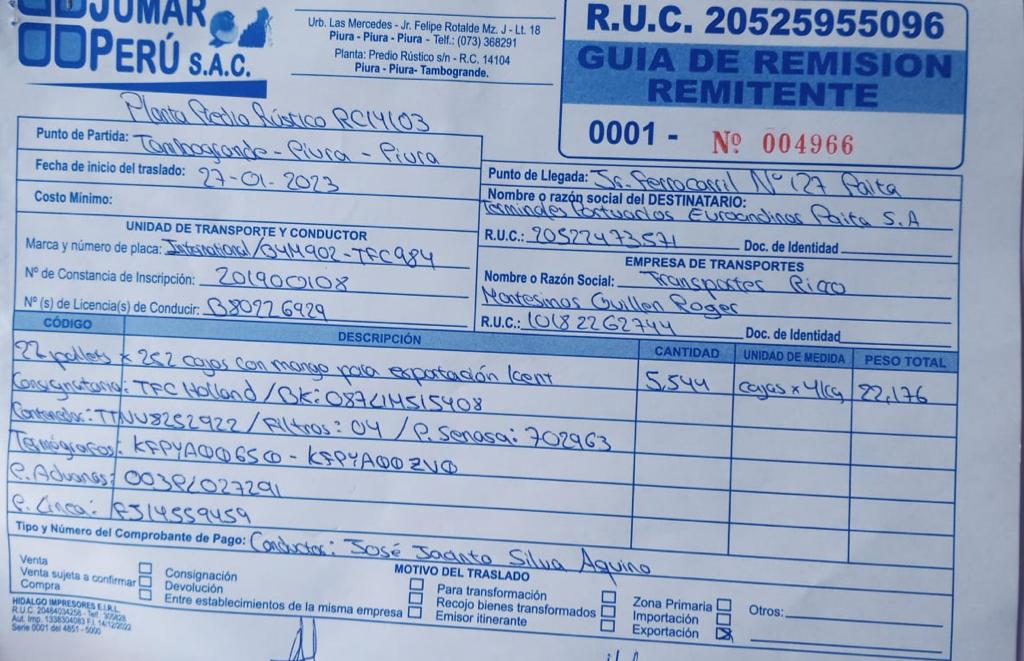 JUMAR
PERÚ S.A.C.
Urb. Las Mercedes - Jr. Felipe Rotalde Mz. J - Lt. 18
Piura - Piura - Piura - Telf.: (073) 368291
Planta: Predio Rústico s/n - R.C. 14104
Piura - Piura- Tambogrande.
R.U.C. 20525955096
GUIA DE REMISION
REMITENTE
0001 - Nº 004966
Planta Predio Rústico RC14103
Punto de Partida: Tambogrande - Piura - Piura
Fecha de inicio del traslado: 27-01-2023
Costo Mínimo:
Punto de Llegada: Jr. Ferrocarril Nº 127 Paita
Nombre o razón social del DESTINATARIO:
Terminales Portuarios Euroandinos Paita S.A
R.U.C.: 20522473571 Doc. de Identidad
UNIDAD DE TRANSPORTE Y CONDUCTOR
Marca y número de placa: International/B4M902-TFC984
Nº de Constancia de Inscripción: 201900108
Nº (s) de Licencia(s) de Conducir: B80226929
EMPRESA DE TRANSPORTES
Nombre o Razón Social: Transportes Rico
Montesinos Guillen Roger
R.U.C.: 10182262744 Doc. de Identidad
CÓDIGO DESCRIPCIÓN CANTIDAD UNIDAD DE MEDIDA PESO TOTAL
22 pallets x 252 cajas con mango para exportación Kent 5,544 cajas x 4kg 22,176
Consignatario: TFC Holland / BK: 087LIM515408
Contenedor: TTNU8252922 / Filtros: 04 / P. Senasa: 702963
Termógrafos: KFPYA00650 - KFPYA00ZV0
P. Aduanas: 003PL027291
P. Linea: PJ14559459
Tipo y Número del Comprobante de Pago: Conductor: José Jacinto Silva Aquino
MOTIVO DEL TRASLADO
Venta
Venta sujeta a confirmar
Compra
Consignación
Devolución
Entre establecimientos de la misma empresa
Para transformación
Recojo bienes transformados
Emisor itinerante
Zona Primaria
Importación
Exportación X
Otros:
HIDALGO IMPRESORES E.I.R.L.
R.U.C. 20484034256 - Telf.: 305828
Aut. Imp. 1338304083 F.I. 14/12/2022
Serie 0001 del 4851 - 5000